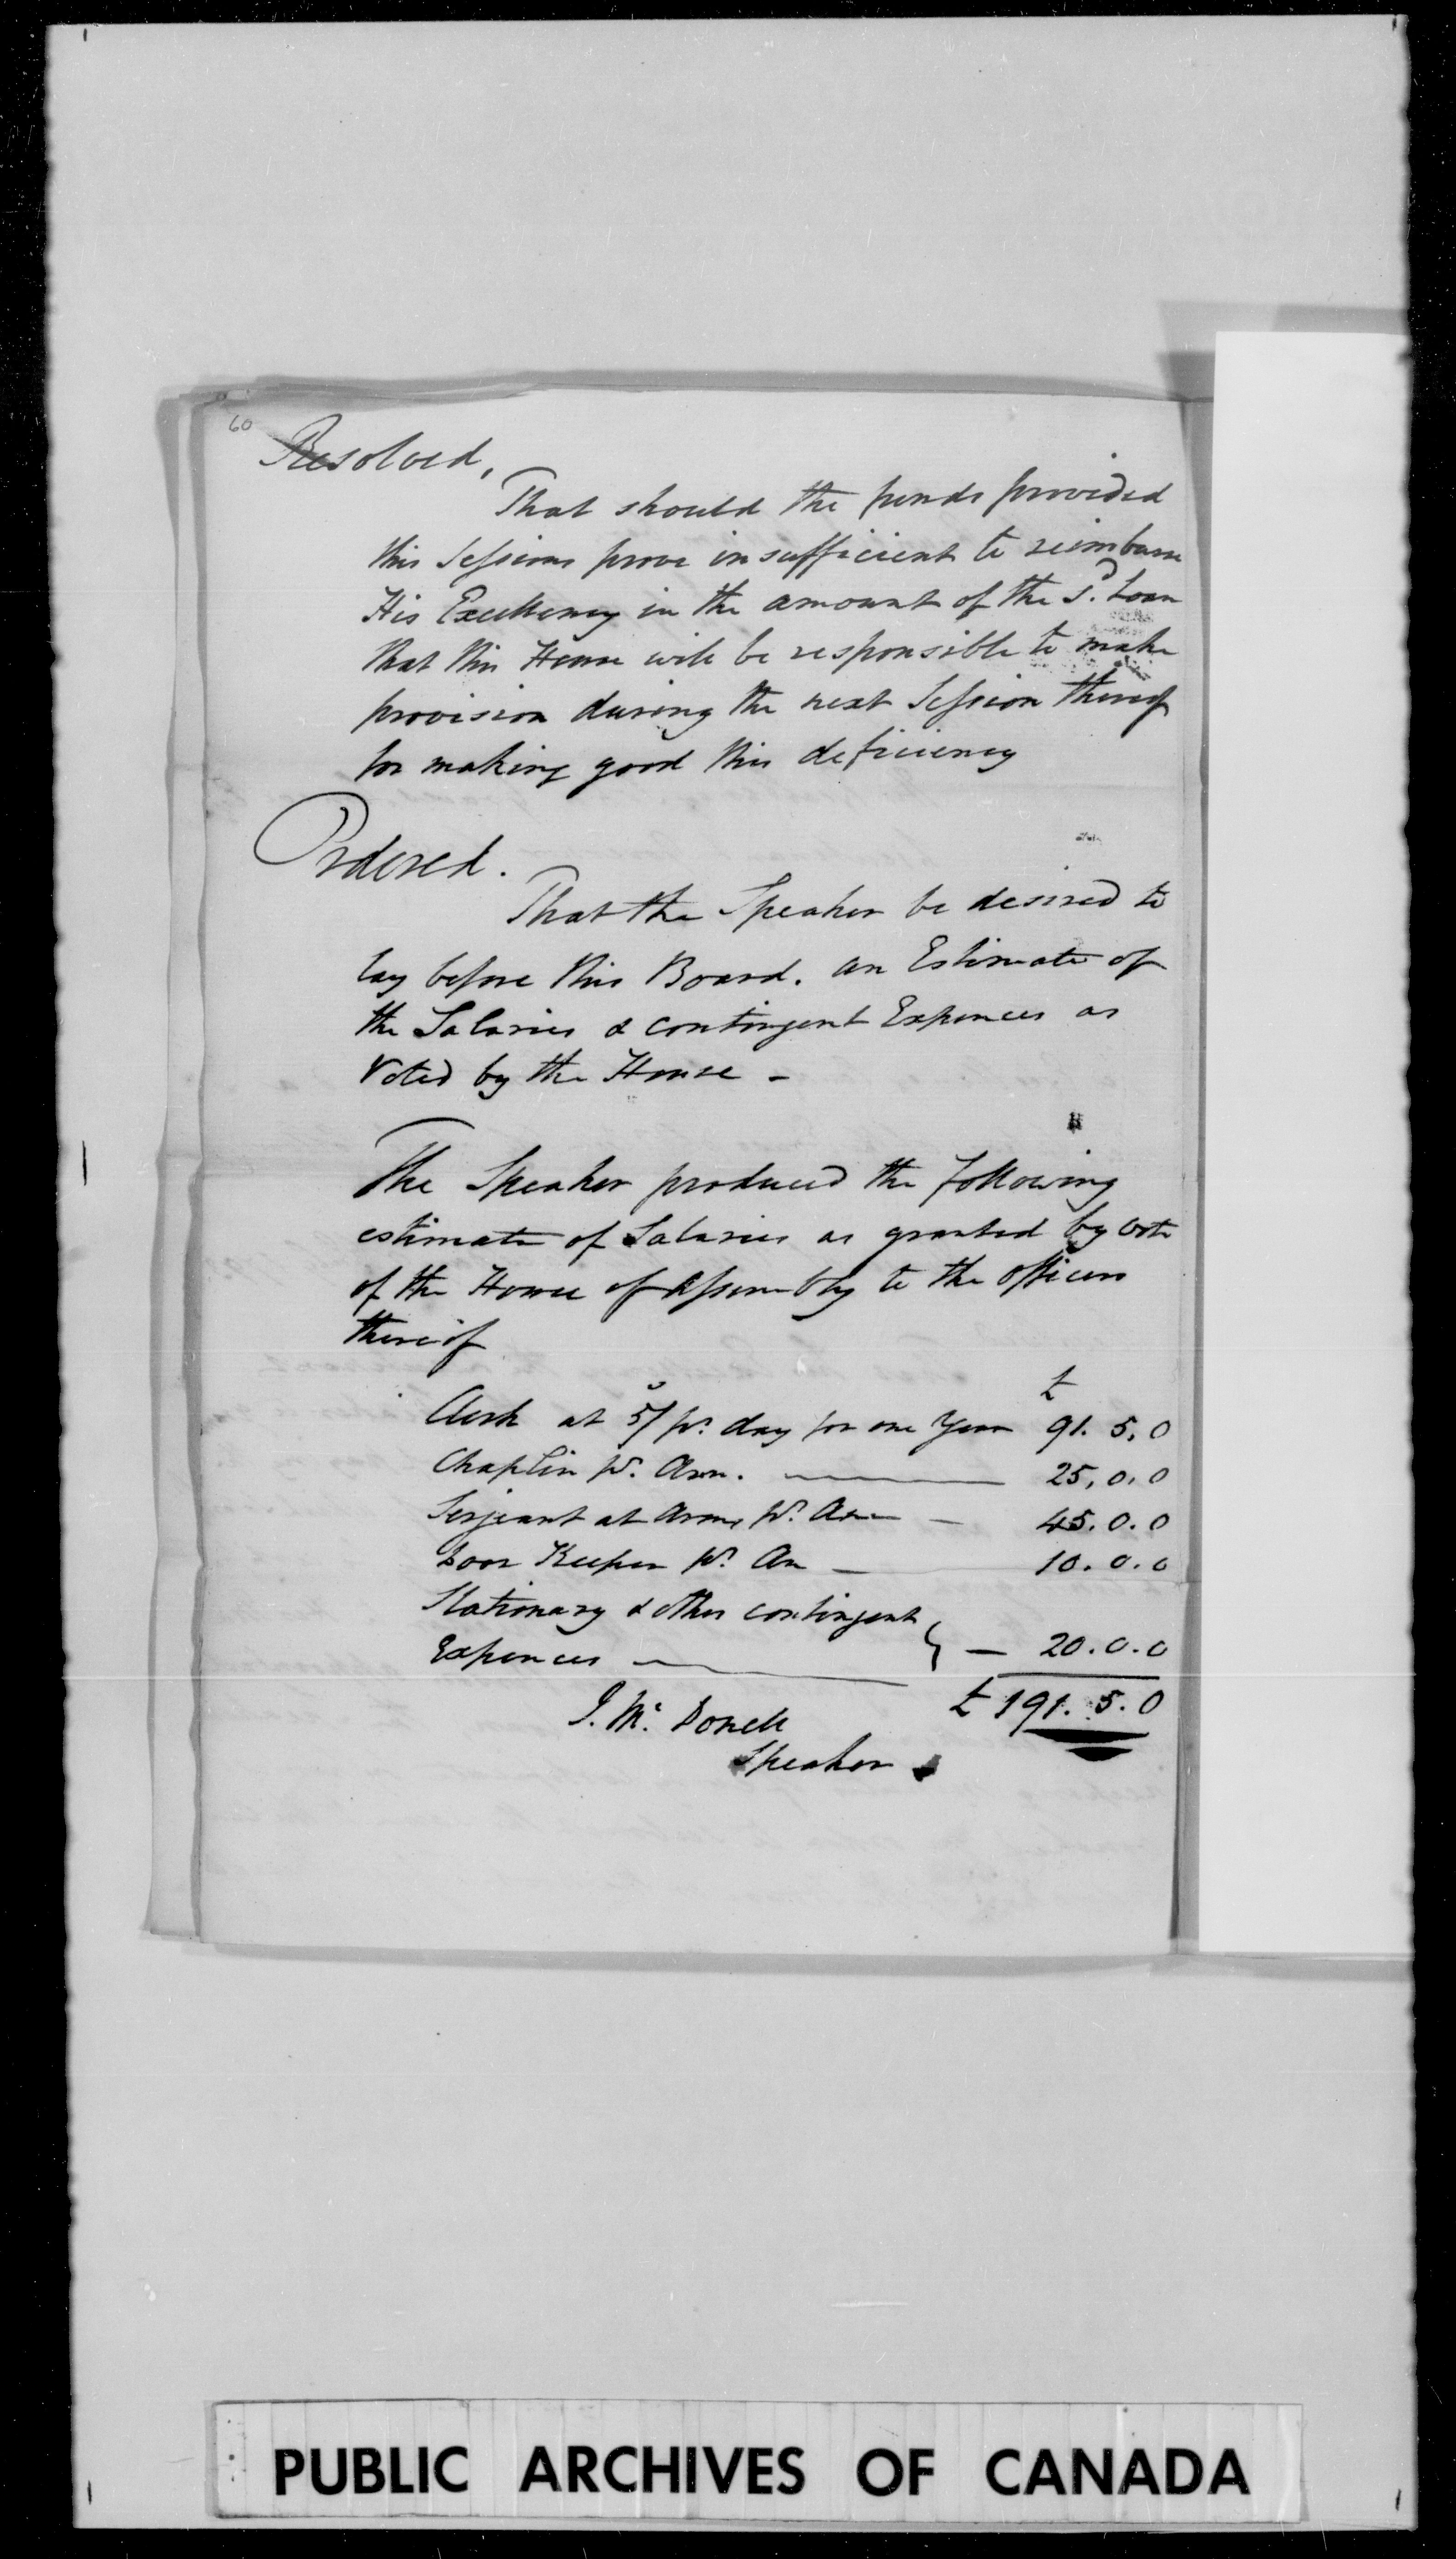 60
Resolved,
That should the funds provided
this Sessions prove insufficient to reimburse
His Excellency in the amount of the Sd. Loan
that this House will be responsible to make
provision during the next Session thereof
for making good this deficiency
Ordered.
That the Speaker be desired to
lay before this Board. an Estimate of
the Salaries & contingent Expences as
Voted by the House -
The Speaker produced the following
estimate of Salaries as granted by vote
of the House of Assembly to the officers
thereof
£
Clerk at 5/ pr. day for one Year 91. 5. 0
Chaplin pr. Ann. — 25. 0. 0
Serjeant at Arms pr. Ann — 45. 0. 0
Door Keeper pr. An — 10. 0. 0
Stationary & other contingent
Expences — } — 20. 0. 0
£ 191. 5. 0
J. Mc. Donell
Speaker
PUBLIC ARCHIVES OF CANADA